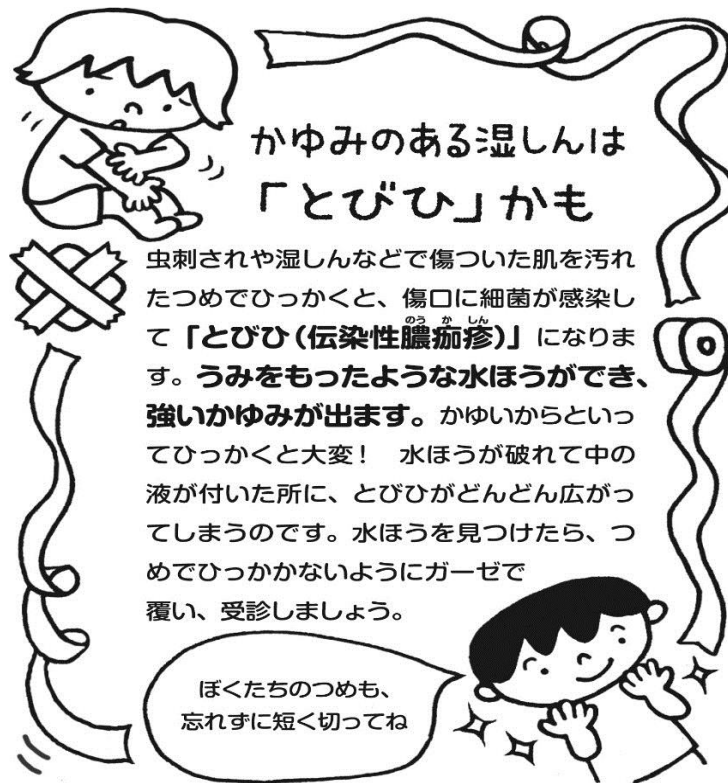 かゆみのある湿しんは
「とびひ」かも
虫刺されや湿しんなどで傷ついた肌を汚れ
たつめでひっかくと、傷口に細菌が感染し
て「とびひ(伝染性膿痂疹)」になりま
す。うみをもったような水ほうができ、
強いかゆみが出ます。かゆいからといっ
てひっかくと大変！　水ほうが破れて中の
液が付いた所に、とびひがどんどん広がっ
てしまうのです。水ほうを見つけたら、つ
めでひっかかないようにガーゼで
覆い、受診しましょう。
ぼくたちのつめも、
忘れずに短く切ってね